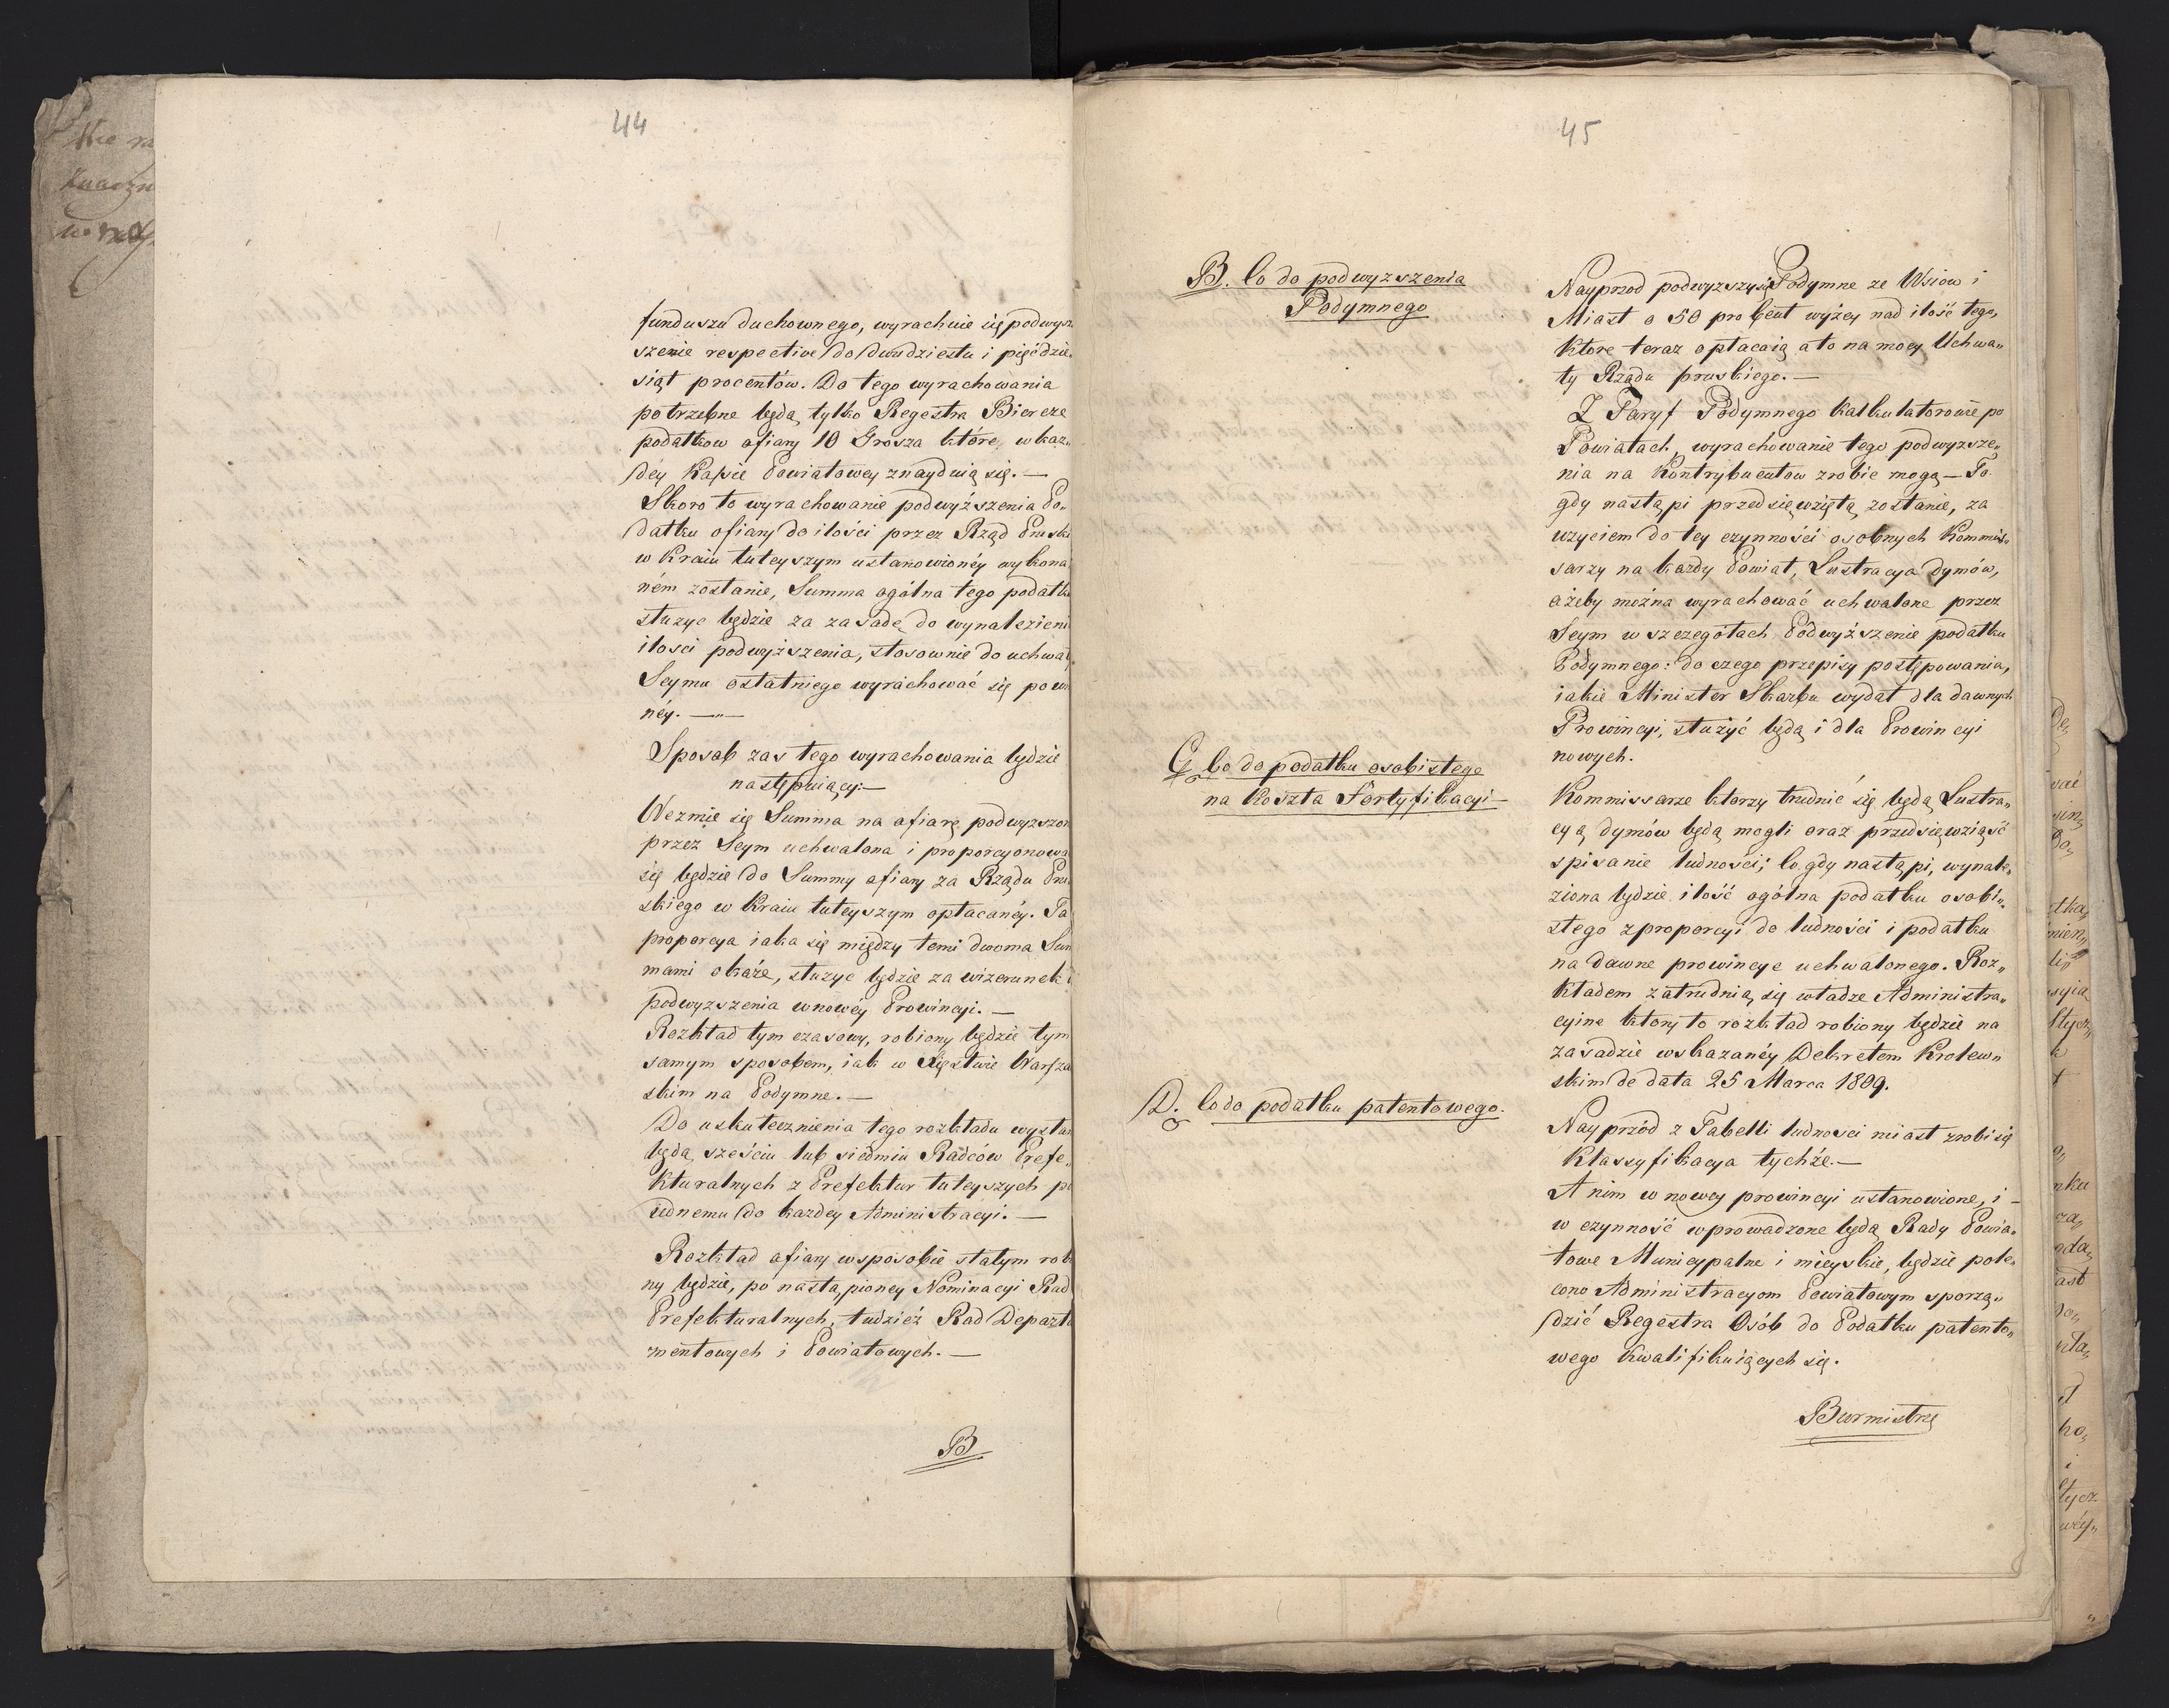 44
funduszu duchownego, wyrachuie się podwyż
szenie respective do dwudziestu i pięćdzie„
siąt procentów. Do tego wyrachowania
potrzebne będą tylko Regestra Biercze
podatkow ofiary 10 Grosza które, w każ„
déy Kassie Powiatowey znayduią się.—
Skoro to wyrachowanie podwyższenia Po„
datku ofiary do ilości przez Rząd Pruski
w kraiu tuteyszym ustanowionéy wykona
ném zostanie, Summa ogólna tego podatku
służyc będzie za zasadę do wynalezieni
ilosci podwyższenia, stosownie do uchwały
Seymu ostatniego wyrachować się pow
néy. —„—
Sposob zas tego wyrachowania będzie
następuiący:—
Wezmie się Summa na ofiarę podwyzszon
przez Seym uchwalona i proporcyonowa
się będzie do Summy ofiary za Rządu Pru
skiego w kraiu tuteyszym opłacanéy. Ta
proporcya iaka się między temi dwoma Sum
mami okaże, służyc będzie za wizerunek
podwyzszenia w nowéy Prowincyi.—
Rozkład tym czasowy, robiony będzie tym
samym sposobem, iak w Xięstwie Warsza
skim na Podymne.—
Do uskutecznienia tego rozkładu wysłan
będą sześciu lub siedmiu Radców Prefe„
kturalnych z Prefektur tuteyszych po
iednemu do kazdey Administracyi.—
Rozkład ofiary w sposobie stałym robi
ny będzie, po nastąpioney Nominacyi Rad
Prefekturalnych, tudzież Rad Departa
mentowych i Powiatowych.—
B
45
B. Co do podwyzszenia
Podymnego
Nayprzod podwyzszy się Podymne ze Wsiow i
Miast o 50 pro Cent wyżey nad ilość tego,
ktore teraz opłacaią a to na mocy Uchwa„
ły Rządu pruskiego.—
Z Taryf Podymnego Kalkulatorowie po
Powiatach, wyrachowanie tego podwyzsze„
nia na Kontrybuentow zrobic mogą — To
gdy nastąpi przedsięwziętą zostanie, za
uzyciem do tey czynności osobnych Kommis„
sarzy na kazdy Powiat, Lustracya Dymów,
ażeby można wyrachować uchwalone przez
Seym w szczegółach Podwyższenie podatku
Podymnego: do czego przepisy postępowania,
iakie Minister Skarbu wydał dla dawnych
Prowincyi, służyć będą i dla Prowincyi
nowych.
C. Co do podatku osobistego
na koszta Fortyfikacyi—
Kommissarze ktorzy trudnić się będą Lustra„
cyą dymów będą mogli oraz przedsięwziąść
spisanie ludności; Co gdy nastąpi, wynale„
ziona będzie ilość ogólna podatku osobi„
stego z proporcyi do ludności i podatku
na dawne prowincye uchwalonego. Roz„
kładem zatrudnią się władze Administra„
cyine ktory to rozkład robiony będzie na
zasadzie wskazanéy Dekretem Krolew„
skim de data 25 Marca 1809.
D. Co do podatku patentowego.
Nayprzód z Tabelli ludnosci miast zrobi się
Klassyfikacya tychże.—
A nim w nowey prowincyi ustanowione, i —
w czynność wprowadzone będą Rady Powia„
towe Municypalne i mieyskie, będzie pole„
cono Administracyom Powiatowym sporzą„
dzić Regestra Osób do Podatku patento„
wego kwalifikuiących się.
Burmistrze